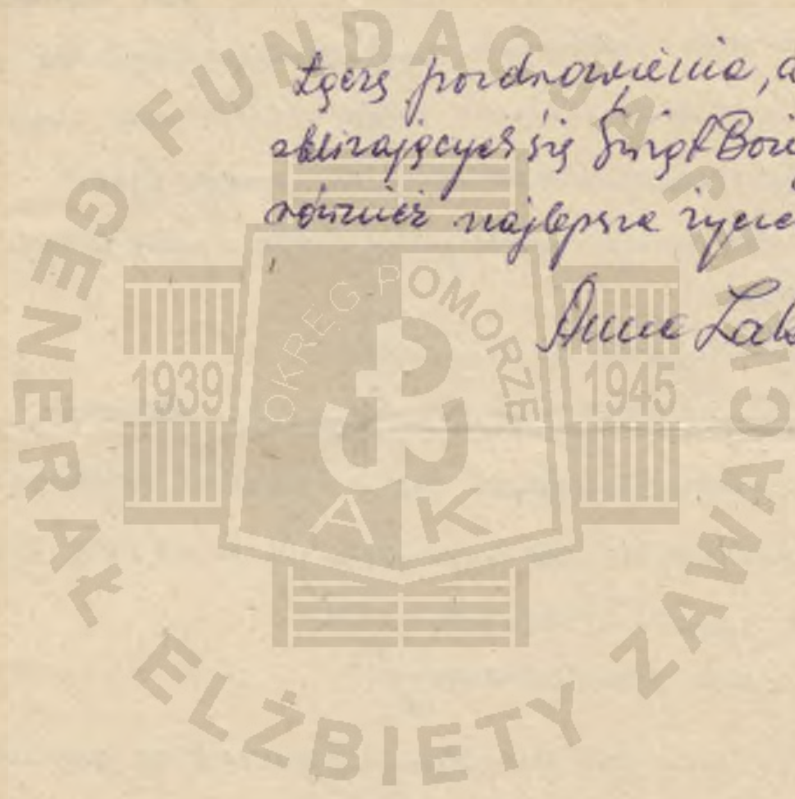 Łączę pozdrowienia, a
zbliżających się Świąt Boże
również najlepsze życze
Anna Lab
FUNDACJA GENERAŁ ELŻBIETY ZAWACKIEJ
OKRĘG POMORZE
1939
1945
AK